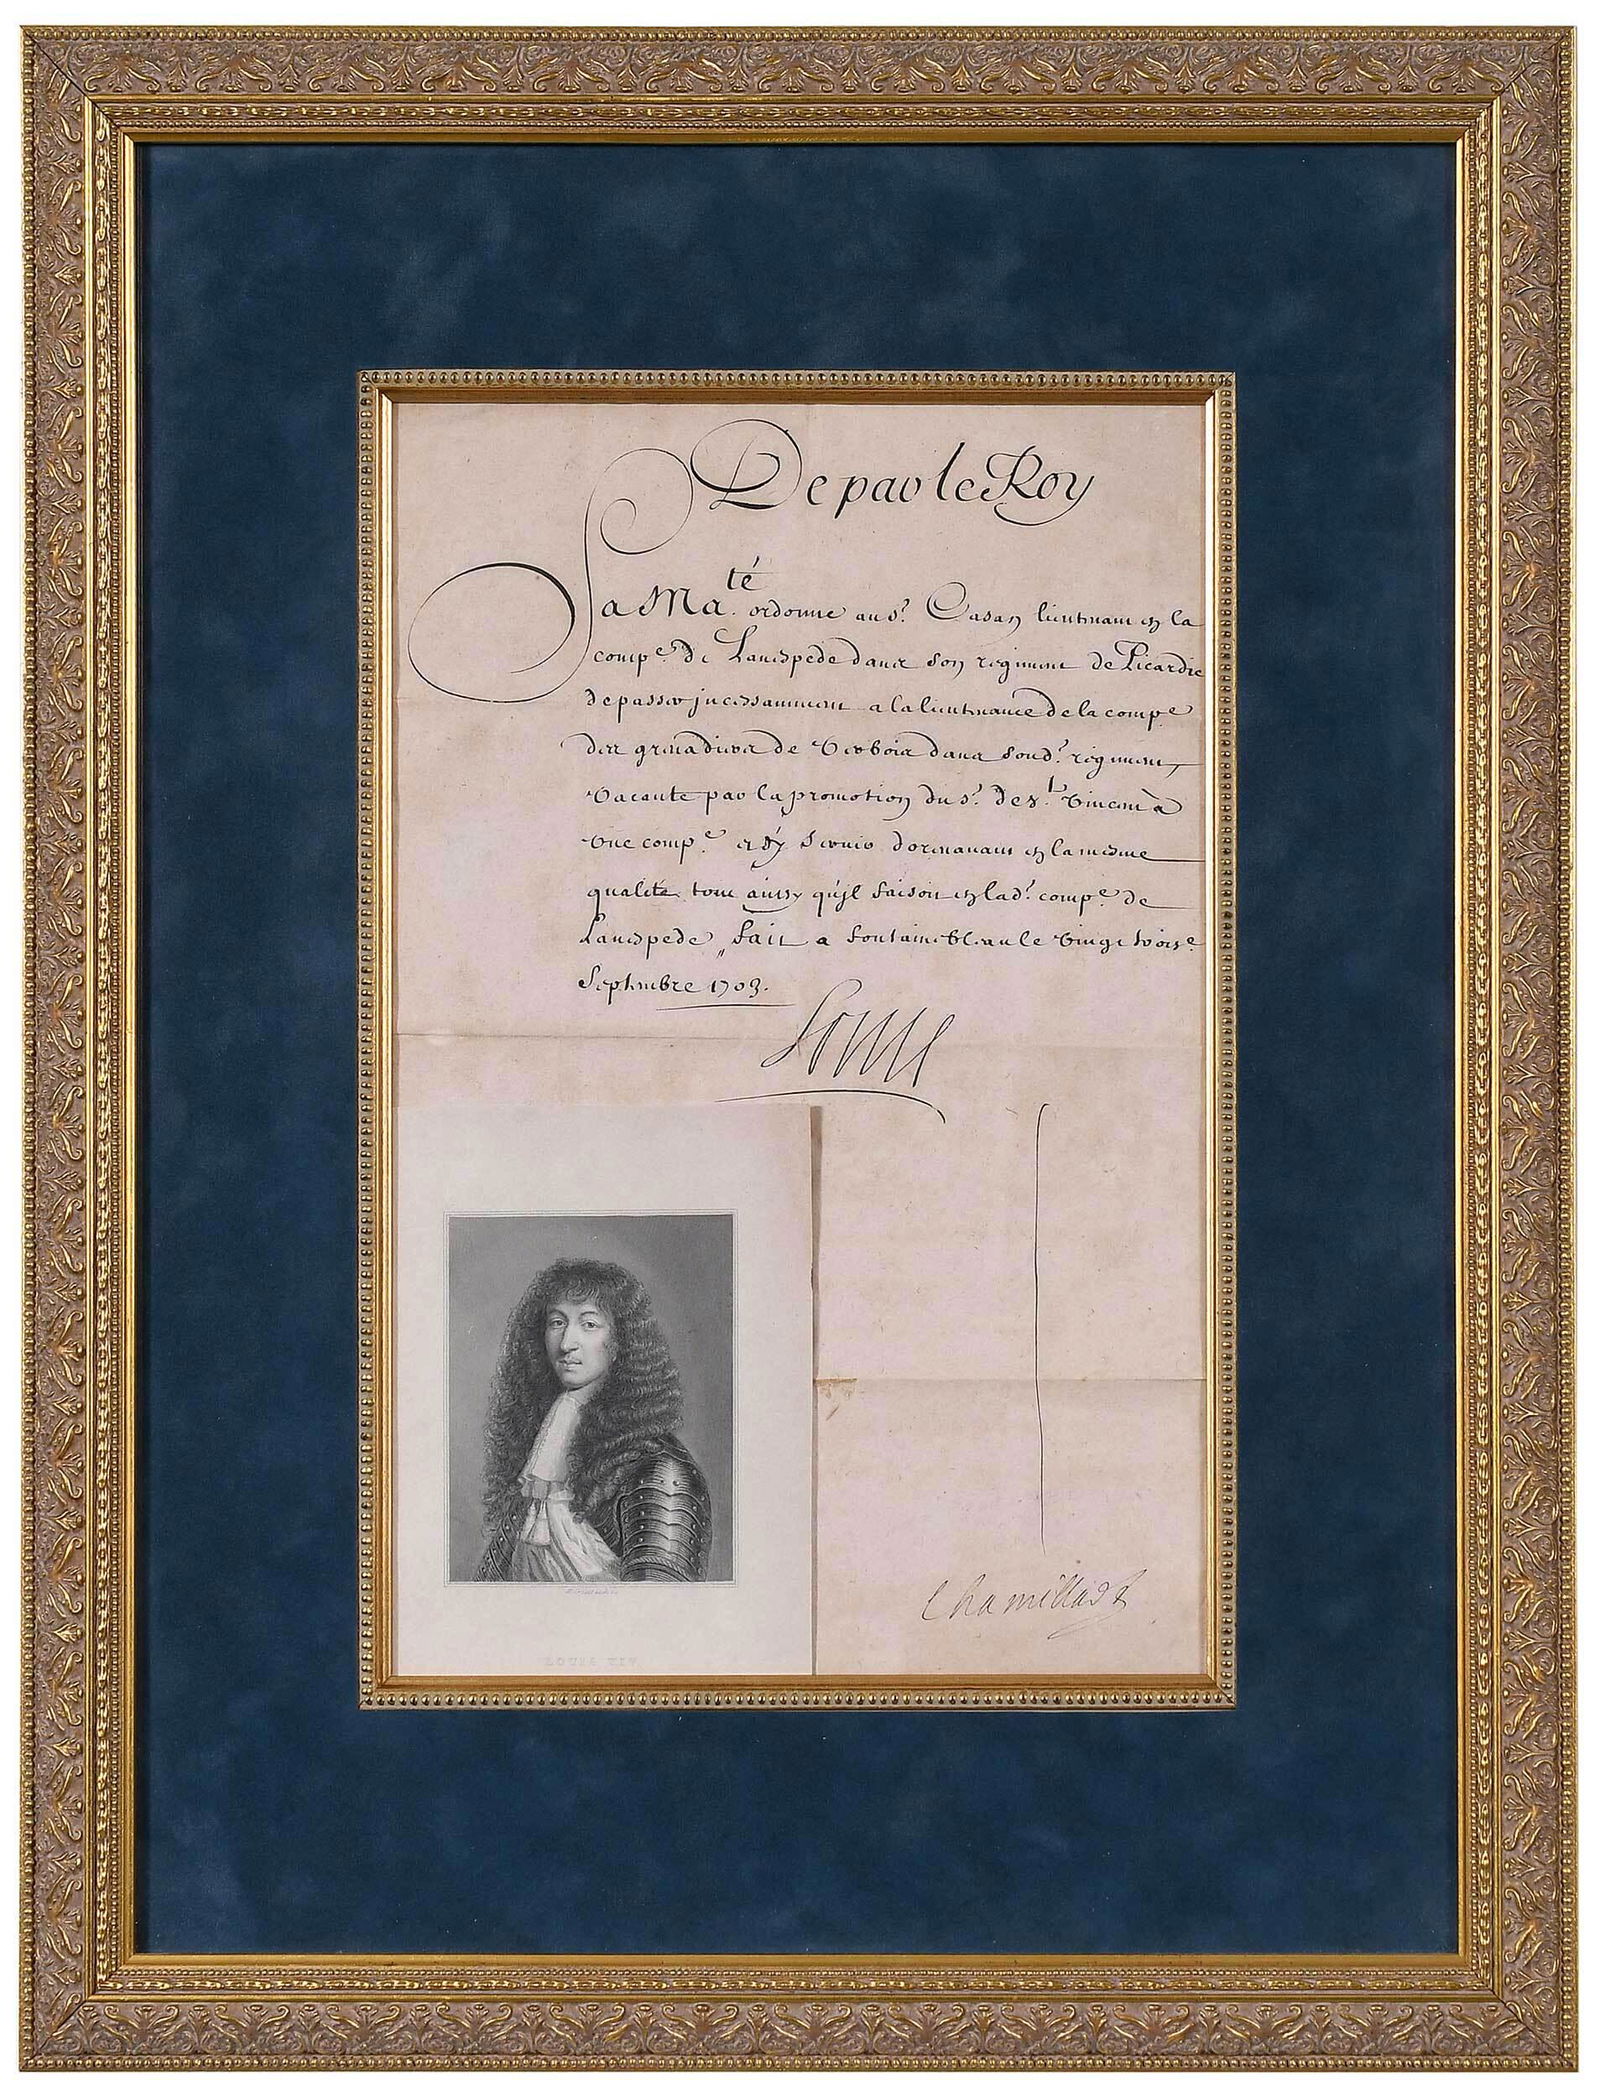 De par le Roy
Sa Ma.té ordonne au s.r Casan lieutenant en la
comp.e de Lanespede dans son regiment de Picardie
de passer incessamment a la lieutenance de la comp.e
des grenadiers de Verbois dans sond.t regiment,
vacante par la promotion du s.r de s.t Vincent à
une comp.e et d'y servir dorenavant en la mesme
qualité tout ainsy qu'jl faisoit en lad.t comp.e de
Lanespede, fait a Fontainebleau le vingt trois.e
Septembre 1703.
Louis
Chamillart
LOUIS XIV